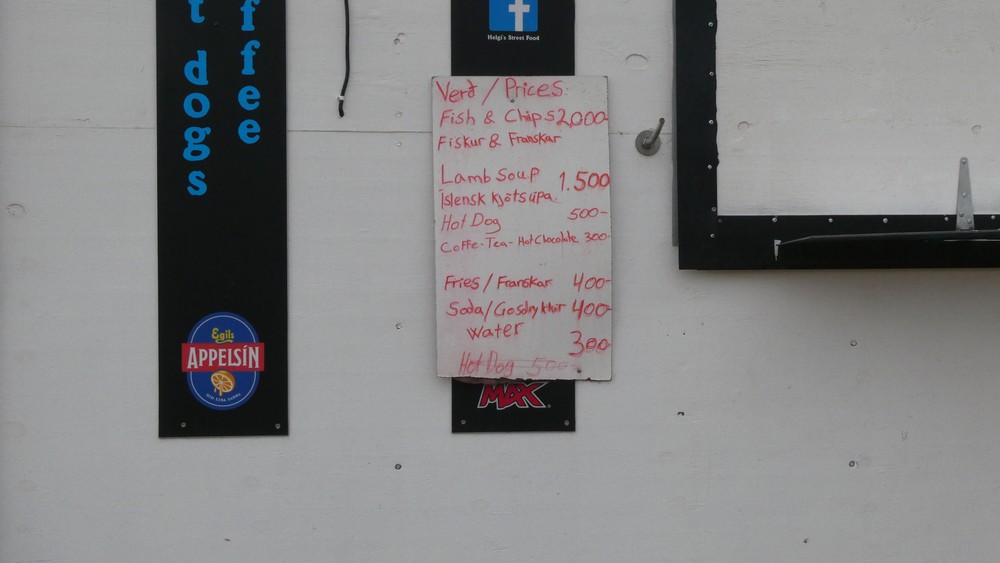 t dogs
ffee
Egils
APPELSÍN
Helgi's Street Food
Verð / Prices:
Fish & Chips 2,000-
Fiskur & Franskar
Lamb Soup 1.500
Íslensk kjötsúpa.
Hot Dog 500-
Coffe - Tea - Hot Chocolate 300-
Fries / Franskar 400-
Soda / Gosdrykkir 400-
Water 300-
Hot Dog 500-
MAX